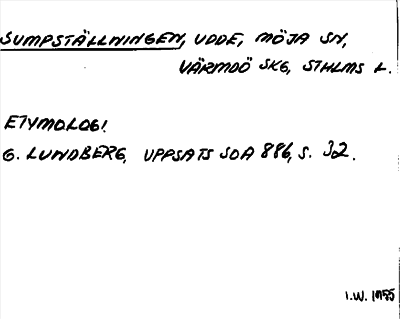 SUMPSTÄLLNINGEN, UDDE, MÖJA SN,
VÄRMDÖ SKG, STHLMS L.
ETYMOLOGI
G. LUNDBERG, UPPSATS SOA 886, S. 32.
I.W. 1955